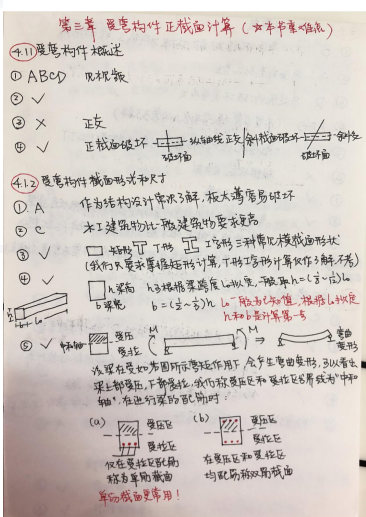 第三章 受弯构件正截面计算 (☆本书重难点)
4.1.1 受弯构件概述
① ABCD 见视频
② ✓
③ × 正交
④ ✓ 正截面破坏 纵轴线正交 斜截面破坏 斜交
破坏面 破坏面
4.1.2 受弯构件截面形式和尺寸
① A 作为结构设计常识了解,板太薄容易破坏
② C 水工建筑物比一般建筑物要求更高
③ ✓ 矩形 T形 工字形 三种常见梁截面形状
(我们只要求掌握矩形计算,T形工字形计算仅作了解,不考)
④ ✓ h 梁高 h=根据梁跨度l₀拟定,一般取h=(1/8~1/12)l₀
b 梁宽 b=(1/2~1/3)h l₀一般为已知值,根据l₀拟定
h和b是计算第一步
⑤ ✓ 中和轴 受压 受拉 M M 弯曲变形
该梁在受如右图所示弯矩作用下,会产生弯曲变形,可以看出
梁上部受压,下部受拉,我们称受压区和受拉区的界线为"中和
轴",在进行梁的配筋时:
(a) 受压区 (b) 受压区
受拉区 受拉区
仅在受拉区配筋 在受压区和受拉区
称为单筋截面 均配筋称双筋截面
单筋截面更常用!